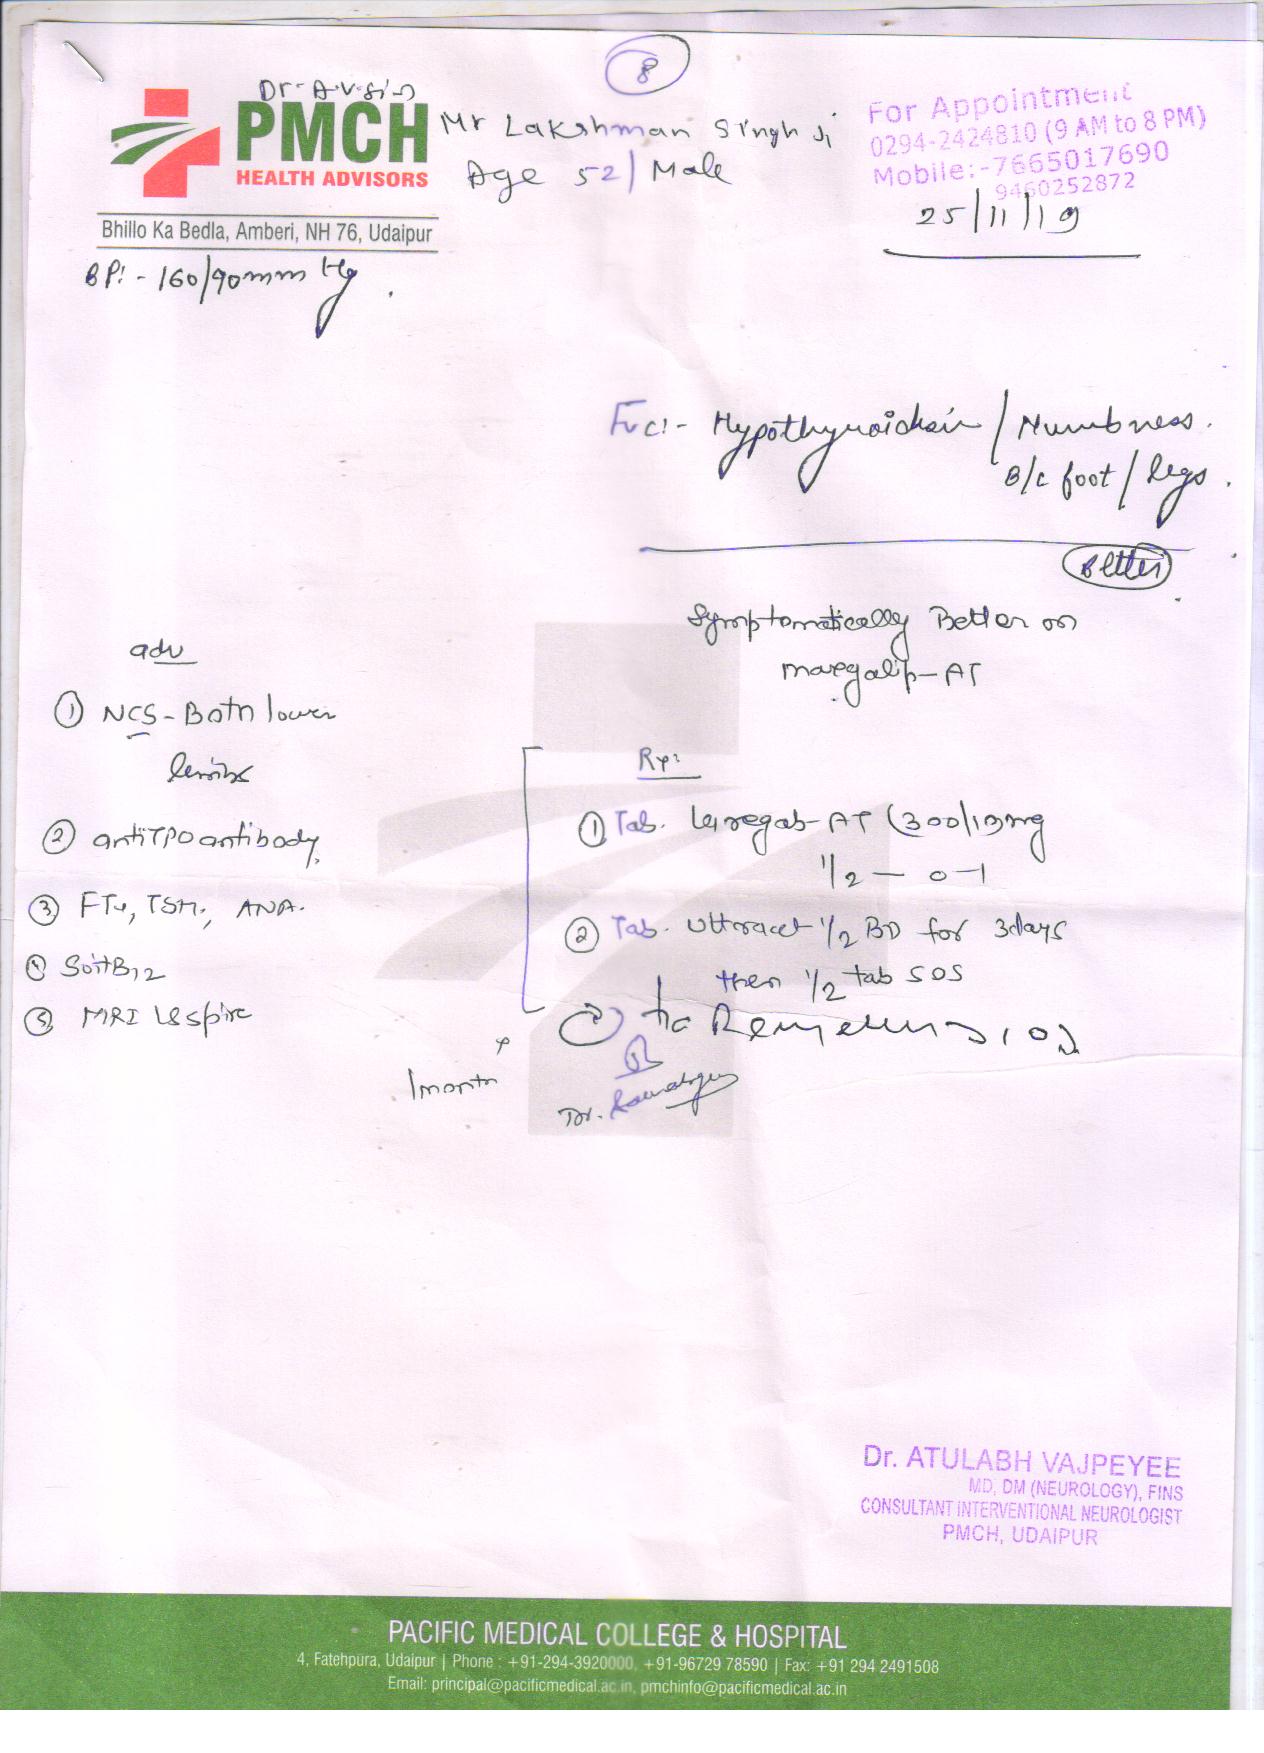 8
Dr. A.V. Sir
PMCH
HEALTH ADVISORS
Mr Lakshman Singh Ji
Age 52 / Male
For Appointment
0294-2424810 (9 AM to 8 PM)
Mobile:-7665017690
9460252872
25/11/19
Bhillo Ka Bedla, Amberi, NH 76, Udaipur
BP:- 160/90mm Hg
Hypothyroidism / Numbness.
foot / legs.
Better
Symptomatically Better on
AT
adv
① NCS - Both lower
limbs
② antiTPO antibody,
③ FT4, TSH, ANA.
④ B12
⑤ MRI spine
Rx:
① Tab. AT (300/10mg
1/2 — 0 — 1
② Tab. Ultracet 1/2 BD for 3days
then 1/2 tab SOS
1 month
Dr.
Dr. ATULABH VAJPEYEE
MD, DM (NEUROLOGY), FINS
CONSULTANT INTERVENTIONAL NEUROLOGIST
PMCH, UDAIPUR
PACIFIC MEDICAL COLLEGE & HOSPITAL
4, Fatehpura, Udaipur | Phone : +91-294-3920000, +91-96729 78590 | Fax: +91 294 2491508
Email: principal@pacificmedical.ac.in, pmchinfo@pacificmedical.ac.in